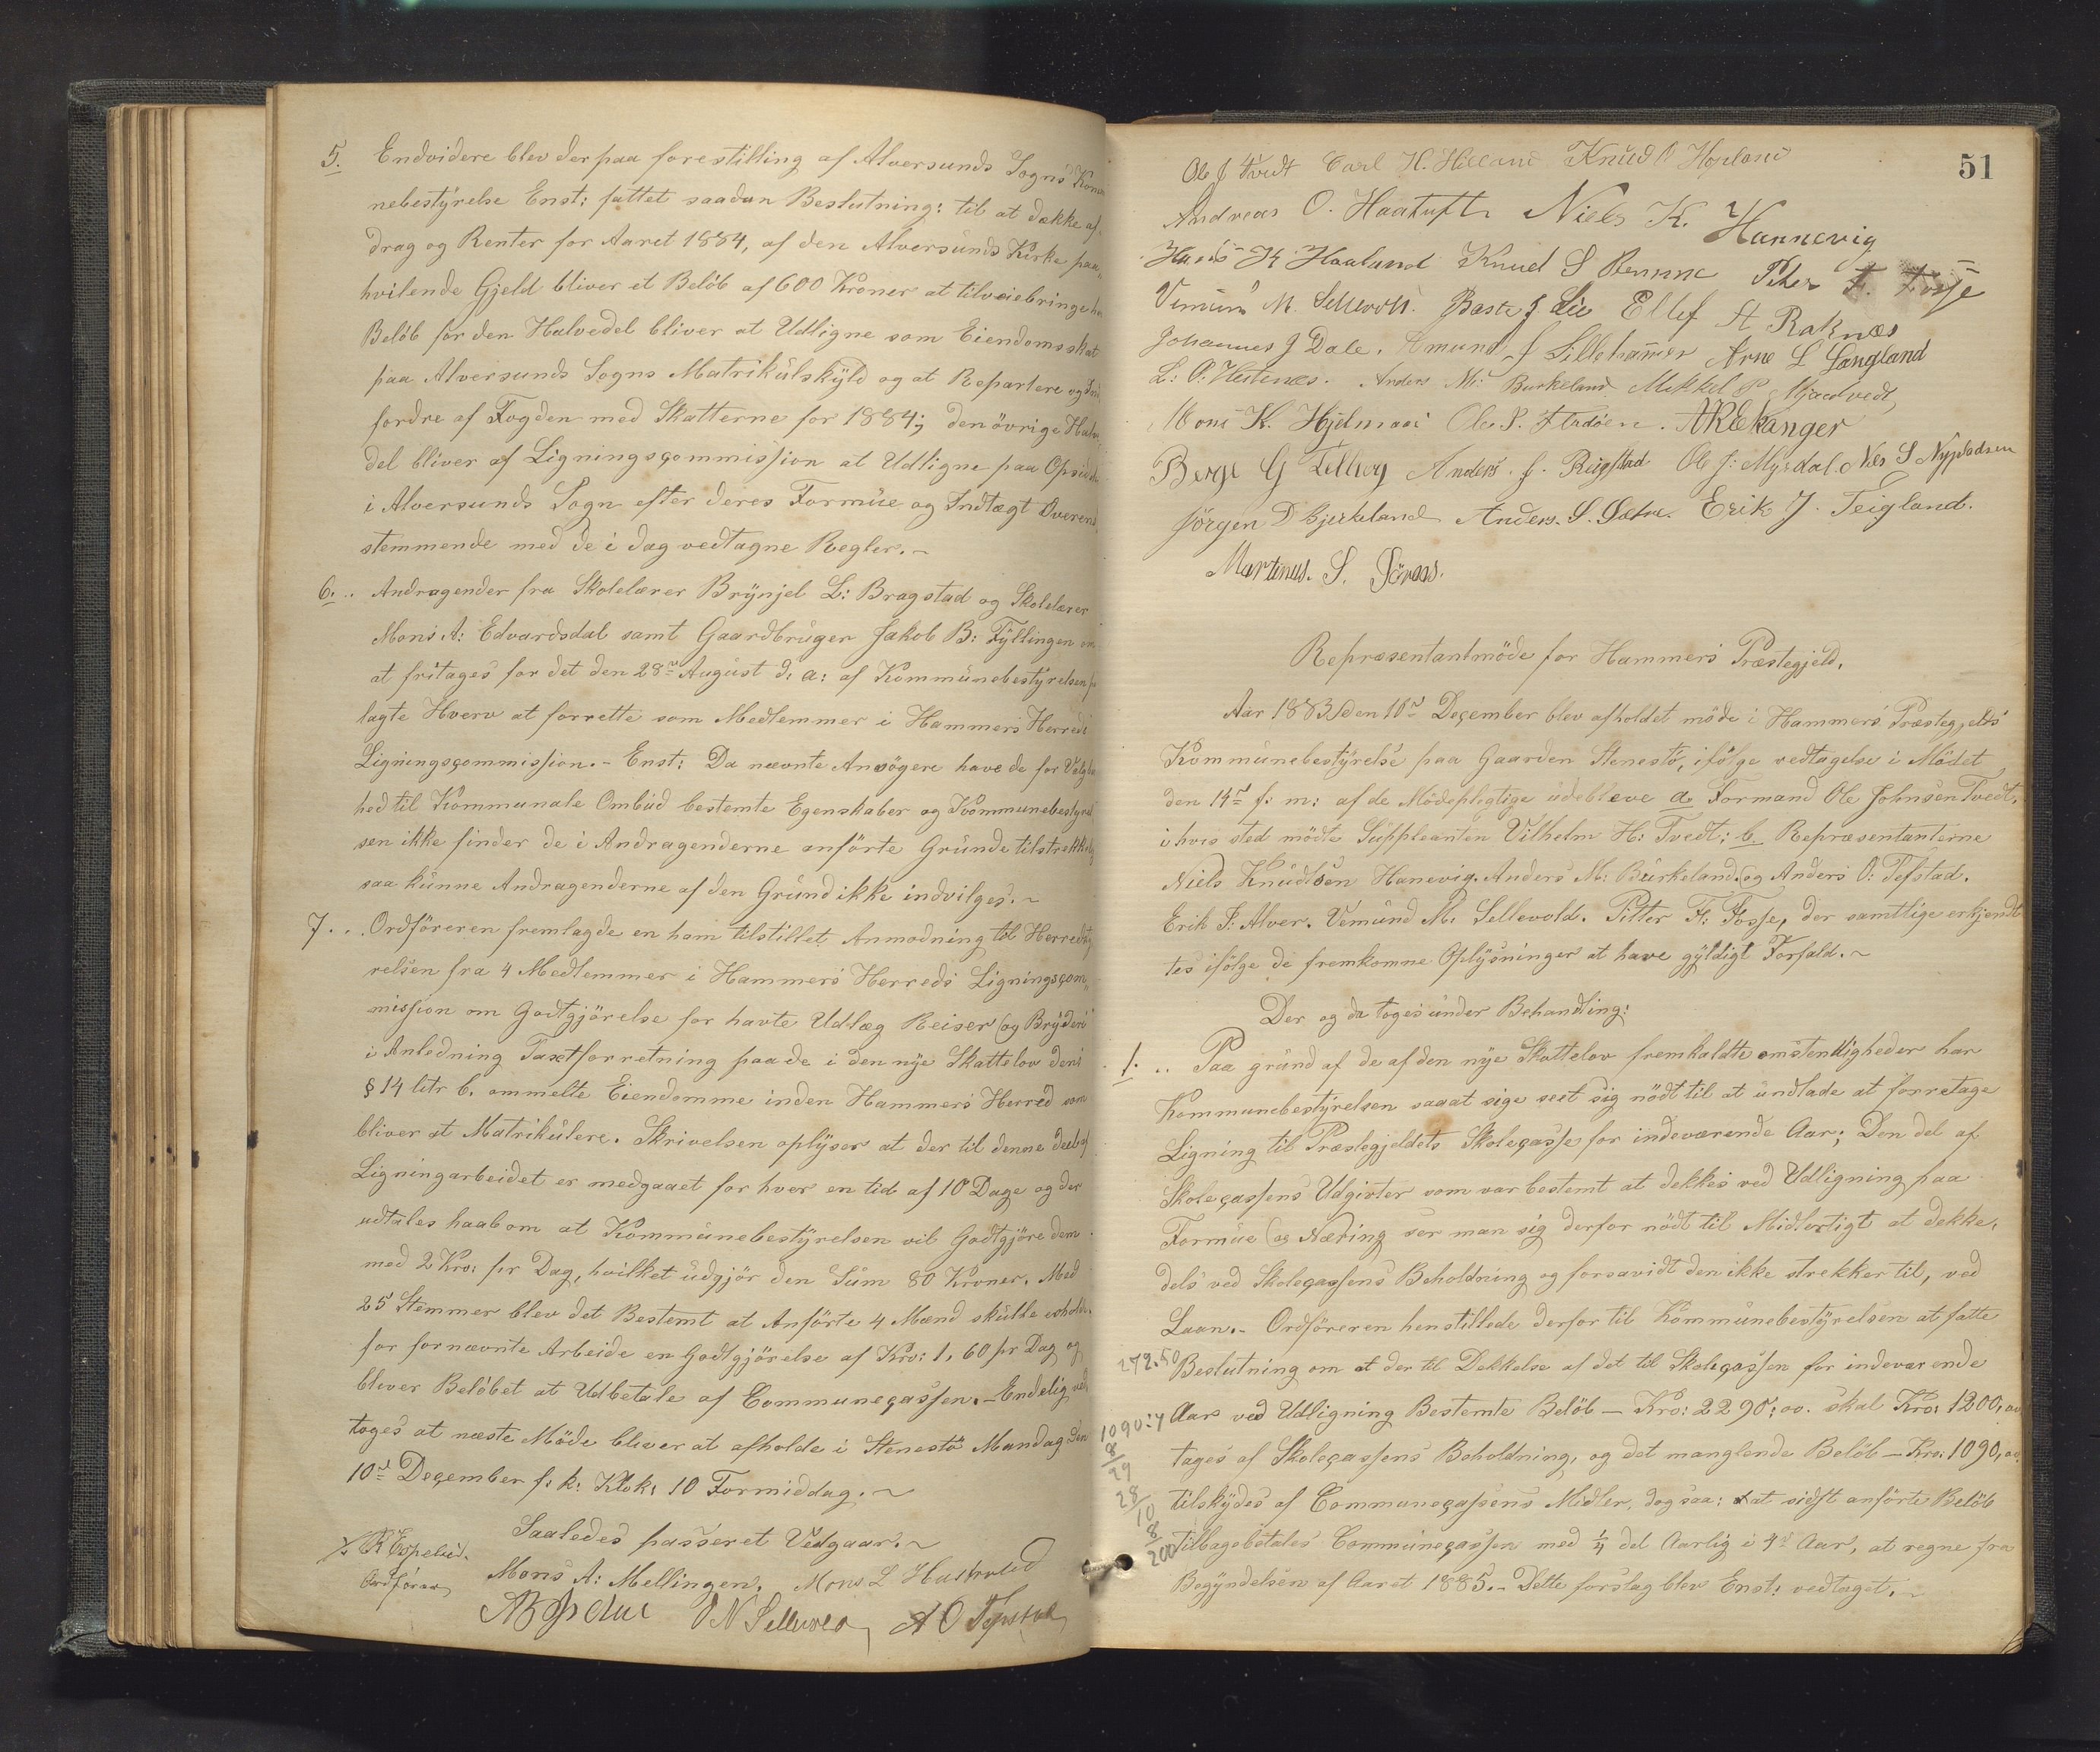 5. Endvidere blev der paa forestilling af Alversunds Sogns Kom
nebestÿrelse Enst: fattet saadan Beslutning: til at dække af„
drag og Renter for Aaret 1884, af den Alversunds Kirke paa„
hvilende Gjeld bliver et Belöb af 600 Kroner at tilveiebringe
Belöb for den Halvedel bliver at Udligne som Eiendomsskat
paa Alversunds Sogns Matrikülskÿld og at Repartere og
fordre af Fogden med Skatterne for 1884; den övrige Halv„
del bliver af Ligningsçommission at Udligne paa Opsid
i Alversunds Sogn efter deres Formüe og Indtægt Overens
stemmende med de i dag vedtagne Regler.~
6... Andragender fra Skolelærer Brÿnjel L: Bragstad og Skolelærer
Mons A: Edvardsdal samt Gaardbrüger Jakob B: Fÿllingen om
at fritages for det den 28de Aügüst d: a: af Kommünebestÿrelsen
lagte Hverv at forrette som Medlemmer i Hammers Herreds
Ligningsçommission.- Enst: Da nævnte Ansögere have de for Valgbar
hed til Kommunale Ombüd bestemte Egenskaber og Kommunebestyrel
sen ikke finder de i Andragenderne anförte Gründe tilstrekkelig
saa künne Andragenderne af den Gründ ikke indvilges.~
7... Ordföreren fremlagde en ham tilstillet Anmodning til Herredsty
relsen fra 4 Medlemmer i Hammers Herreds Ligningsçom„
mission om Godtgjörelse for havte Udlæg Reiser og Brÿderi
i Anledning Taxtforretning paa de i den nÿe Skattelov dens
§ 14 litr b. ommelte Eiendomme inden Hammers Herred som
bliver at Matrikülere. Skrivelsen oplÿser at der til denne deel af
Ligningarbeidet er medgaaet for hver en tid af 10 Dage og der
udtales haab om at Kommünebestÿrelsen vil Godtgjöre dem
med 2 Kro: pr Dag, hvilket üdgjör den Süm 80 Kroner. Med
25 Stemmer blev det Bestemt at Anförte 4 Mænd skülle erholde
for fornævnte Arbeide en Godtgjörelse af Kro: 1,60 pr Dag og
bliver Belöbet at Udbetale af Communeçassen.- Endelig ved
toges at næste Möde bliver at afholde i Stenestö Mandag den
10de Deçember f: k: Klok: 10 Formiddag.~
Saaledes passeret Vedgaar.~
R Espelid.
Ordförer
Mons A: Mellingen. Mons L Husholed
O N Sellevold A O Tepstad
51
Ole J Tvedt Carl H. Helland Knud O Hopland
Andreas O. Haatuft Niels K. Hannevig
Hans K Haaland Knud S Rennnc Peter F. Fosse
Vemünd M. Sellevold. Baste J Lie Ellef A Raknæs
Johannes J Dale. Amund J Lillehammer Arne L Langland
L: O: Hestenes. Anders M: Burkeland Mikkel P Mjaedvedt
Mons K. Hjelmaai Ole P. Askeland. A K Ekanger
Berge G Fedberg Anders J. Reigstad Ole J: Myrdal. Nils S Nypladsen
Jörgen D Bjerkeland Anders. S. Sætre. Erik J. Teigland.
Martinus. S. Söraas.
Repræsentantmöde for Hammers Præstegjeld.
Aar 1883 den 10de Deçember blev afholdet möde i Hammers Præstegjelds
Kommünebestÿrelse paa Gaarden Stenestö, ifölge vedtagelse i Mödet
den 14de f: m: af de Mödeplegtige üdebleve a. Formand Ole Johnsen Tvedt,
i hvis sted mödte Süppleanten Vilhelm H: Tvedt; b. Repræsentanterne
Niels Knüdsen Hanevig. Anders M: Bürkeland. og Anders O: Tefstad.
Erik I: Alver. Vemünd M: Sellevold. Pitter F: Fosse, der samtlige erkjendt
tes ifölge de fremkomne Oplÿsninger at have gÿldigt Forfald.~
Der og da toges ünder Behandling:
1... Paa gründ af de af den nÿe Skattelov fremkaldte omstendigheder har
Kommunebestÿrelsen saaat sige seet sig nödt til at ündlade at forretage
Ligning til Præstegjeldets Skoleçasse for indeværende Aar; Den del af
Skoleçassens Udgivter som var bestemt at dekkes ved Udligning paa
Formüe og Næring ser man sig derfor nödt til Midlertigt at dekke,
dels ved Skoleçassens Beholdning og forsavidt den ikke strekker til, ved
Laan.- Ordföreren henstillede derfor til Kommünebestÿrelsen at fatte
272.50
Beslutning om at der til Dekkelse af det til Skoleçassen for indeværende
1090:4
8
29
28
10
8
200
Aar ved Udligning Bestemte Belöb — Kro: 2290;00. skal Kro: 1200,00
tages af Skoleçassens Beholdning, og det manglende Belöb — Kro: 1090,00.
tilskÿdes af Communeçassens Midler, dog saa: at sidst anförte Belöb
tilbagebetales Commüneçassen med ¼ del Aarlig i 4de Aar, at regne fra
Begÿndelsen af Aaret 1885.- Dette forslag blev Enst: vedtaget.~